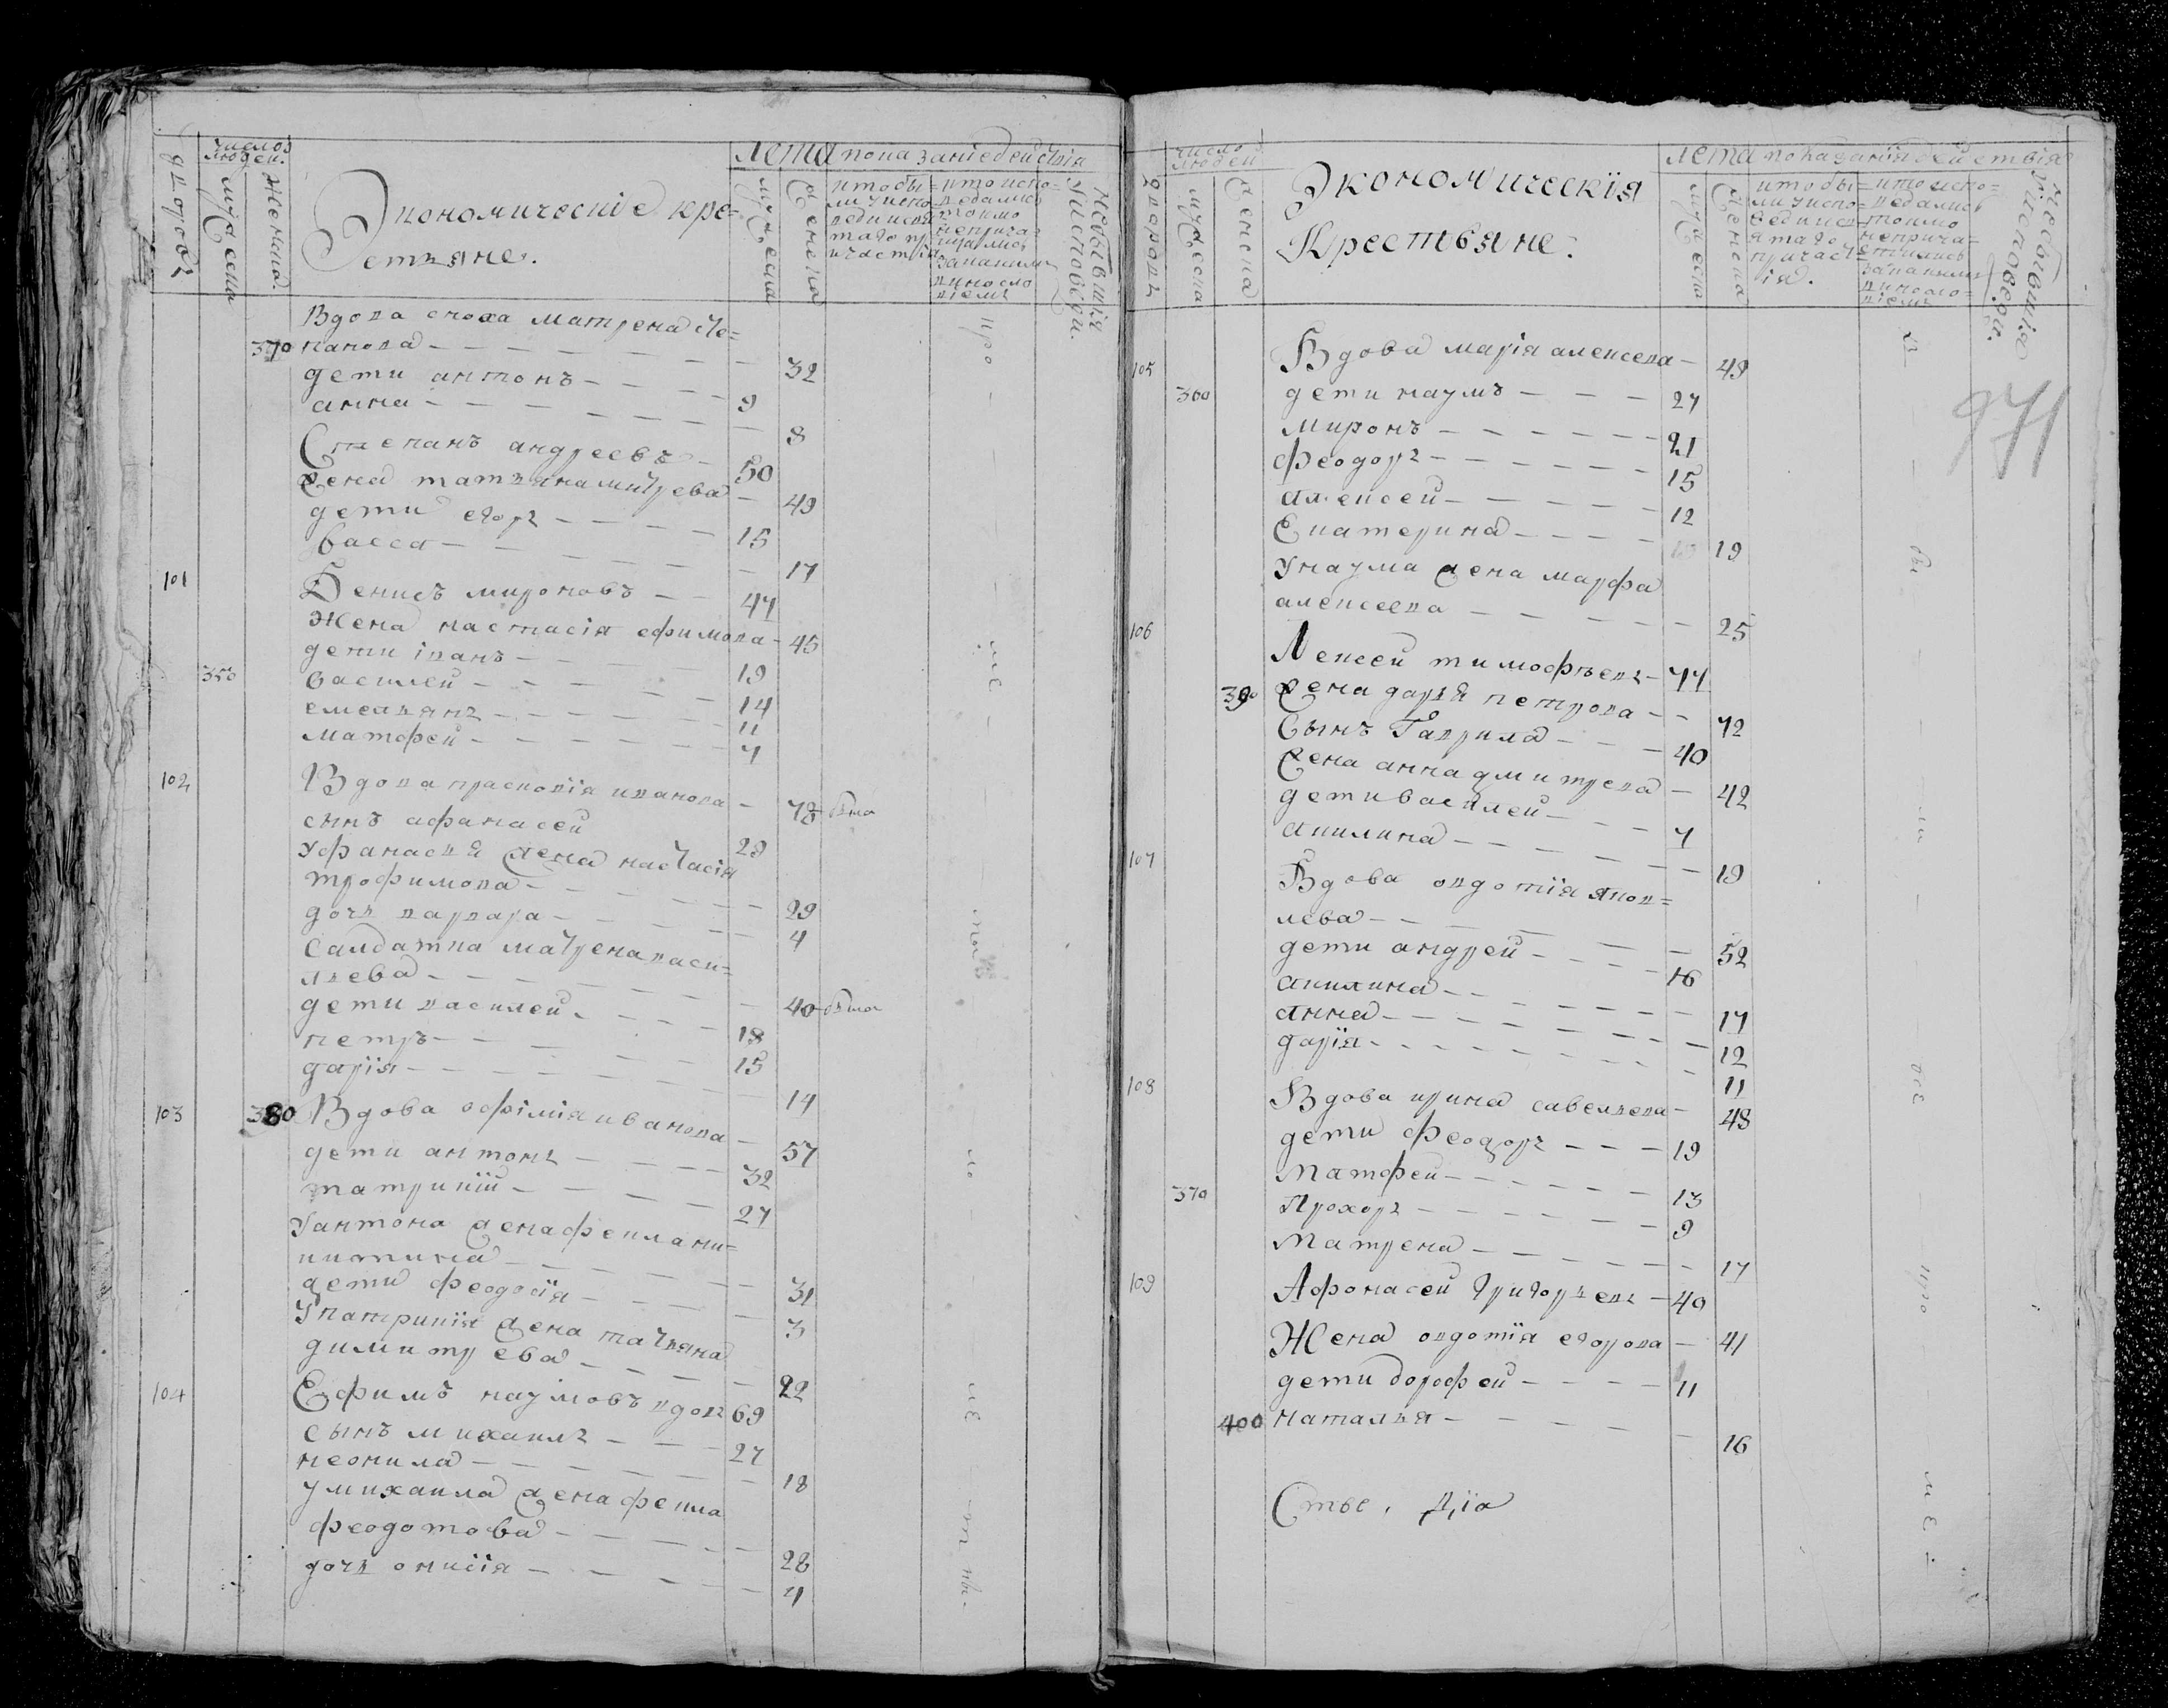 дворовъ
число людей.
мужеска
женска.
Экономическіе кре=
стьяне.
Лета
показаніе действія
мужеска
женска
кто бы=
ли у испо=
веди и свя=
таго пр
ичастія
кто испо=
ведались
токмо
неприча=
щались
за каким
винасло
віемъ
небывшія
у исповеди.
Вдова сноха матрена сте=
370 панова — 32
дети антонъ — 9
анна — 8
Степанъ андреевъ — 50
жена татьяна митрева — 49
дети егоръ — 15
васса — 17
101 Денисъ мироновъ — 47
Жена настасія ефимова — 45
дети іванъ — 19
350 василей — 14
емельянъ — 11
матфей — 7
102 Вдова прасковія иванова — 78 была
сынъ афанасей 29
у афанасья жена настасія
трофимова — 29
дочь варвара — 4
салдатка матрена васи=
льева — 40 была
дети василей — 18
петръ — 15
дарія — 14
103 380 Вдова ефімія иванова — 57
дети антонъ — 32
патрикій — 27
У антона жена фекла ни=
китина — 31
дети феодосія — 3
У патрикія жена татьяна
димитрева — 22
104 Ефимъ наумовъ вдовъ 69
сынъ михаилъ — 27
неонила — 18
у михаила жена фекла
феодотова — 28
дочь онисія — 4
дворовъ
число людей
мужеска
женска
Экономическія
Крестьяне.
лета показанія действія
мужеска
женска
кто бы=
ли у испо=
веди и св
ятаго
причаст=
ія.
кто испо=
ведались
токмо
неприча=
стились
за каким
винасло=
віемъ
небывшія
у исповеди.
971
105 Вдова марія алексева — 49
360 дети наумъ — 27
миронъ — 21
феодоръ — 15
алексей — 12
Екатерина — 19
У наума жена марфа
алексеева — 25
106 Алексей тимофѣевъ — 77
390 жена дарья петрова — 72
Сынъ Гаврила — 40
жена анна дмитрева — 42
дети василей — 7
акилина — 19
107 Вдова овдотія яков=
лева — 52
дети андрей — 16
акилина — 17
анна — 12
дарія — 11
108 Вдова ирина савельева — 48
дети феодоръ — 19
Матфей — 13
370 Прохоръ — 9
Матрена — 17
109 Афонасей григорьевъ — 40
Жена овдотія егорова — 41
дети дорофей — 11
400 наталья — 16